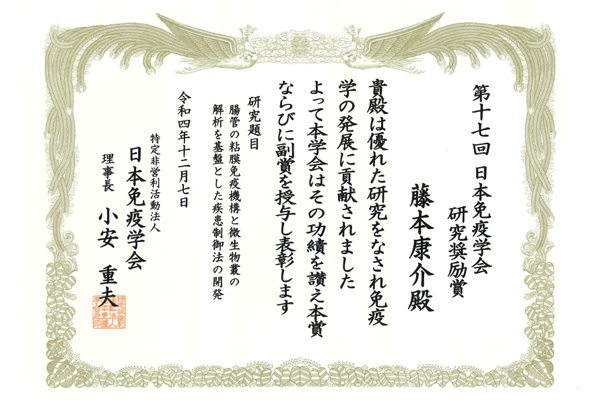 第十七回 日本免疫学会
研究奨励賞
藤本康介殿
貴殿は優れた研究をなされ免疫
学の発展に貢献されました
よって本学会はその功績を讃え本賞
ならびに副賞を授与し表彰します
研究題目
腸管の粘膜免疫機構と微生物叢の
解析を基盤とした疾患制御法の開発
令和四年十二月七日
特定非営利活動法人
日本免疫学会
理事長 小安 重夫